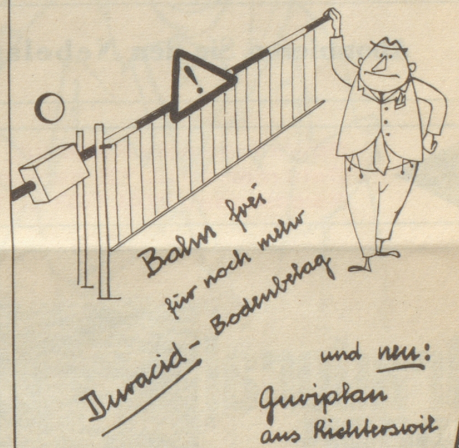 !
Bahn frei
für noch mehr
Duracid-Bodenbelag
und neu:
Guviplan
aus Richterswil